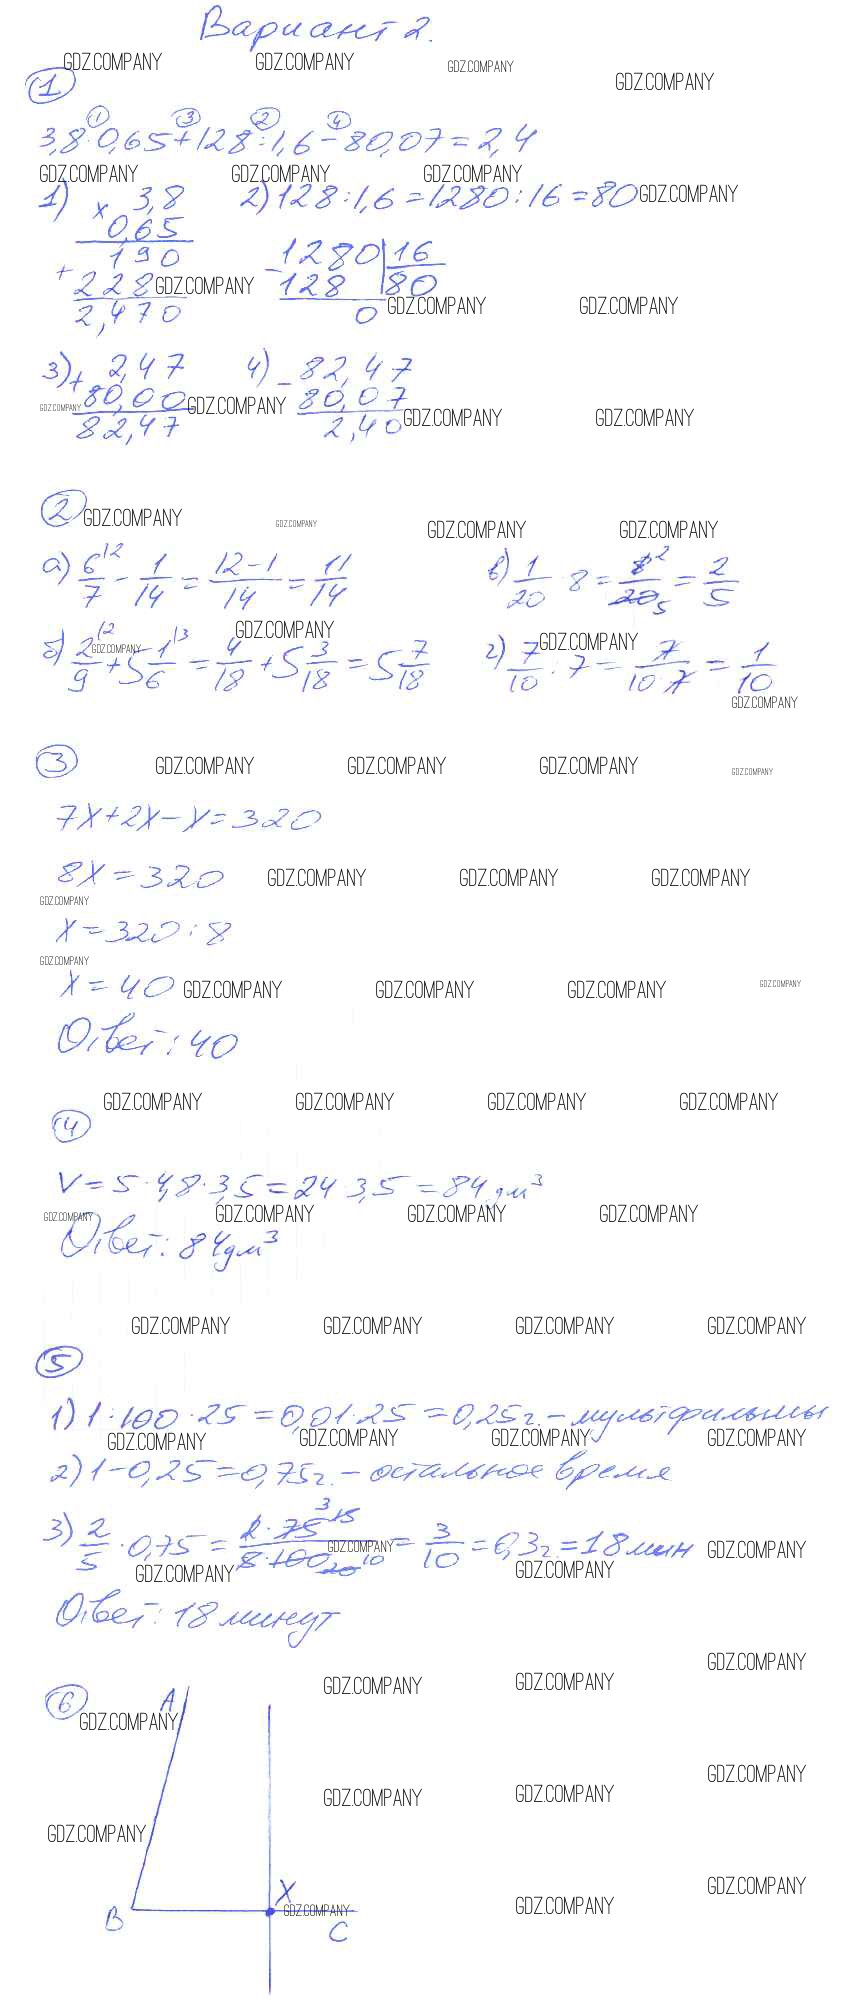 Вариант 2.
GDZ.COMPANY GDZ.COMPANY GDZ.COMPANY GDZ.COMPANY
1
① ③ ② ④
3,8·0,65+128:1,6-80,07=2,4
GDZ.COMPANY GDZ.COMPANY GDZ.COMPANY
1) x 3,8 2) 128:1,6=1280:16=80 GDZ.COMPANY
0,65
190 - 1280 | 16
+ 228 GDZ.COMPANY 128 80
2,470 0 GDZ.COMPANY GDZ.COMPANY
3) + 2,47 4) - 82,47
GDZ.COMPANY 80,00 GDZ.COMPANY 80,07
82,47 2,40 GDZ.COMPANY GDZ.COMPANY
2 GDZ.COMPANY GDZ.COMPANY GDZ.COMPANY GDZ.COMPANY
а) 6/7 \2 - 1/14 = 12-1/14 = 11/14 в) 1/20 · 8 = 8 2/20 5 = 2/5
GDZ.COMPANY GDZ.COMPANY GDZ.COMPANY
б) 2/9 \2 + 5 1/6 \3 = 4/18 + 5 3/18 = 5 7/18 г) 7/10 : 7 = 7/10·7 = 1/10
GDZ.COMPANY
3 GDZ.COMPANY GDZ.COMPANY GDZ.COMPANY GDZ.COMPANY
7x+2x-x=320
8x=320 GDZ.COMPANY GDZ.COMPANY GDZ.COMPANY
GDZ.COMPANY
x=320:8
GDZ.COMPANY
x=40 GDZ.COMPANY GDZ.COMPANY GDZ.COMPANY GDZ.COMPANY
Ответ: 40
GDZ.COMPANY GDZ.COMPANY GDZ.COMPANY GDZ.COMPANY
4
V=5·4,8·3,5=24·3,5=84дм³
GDZ.COMPANY GDZ.COMPANY GDZ.COMPANY GDZ.COMPANY
Ответ: 84дм³
GDZ.COMPANY GDZ.COMPANY GDZ.COMPANY GDZ.COMPANY
5
1) 1:100·25=0,01·25=0,25г.-мультфильмы
GDZ.COMPANY GDZ.COMPANY GDZ.COMPANY GDZ.COMPANY
2) 1-0,25=0,75г.-остальное время
3) 2/5 · 0,75 = 2·75 3 15/5·100 20 10 = 3/10 = 0,3г.=18мин
GDZ.COMPANY GDZ.COMPANY GDZ.COMPANY GDZ.COMPANY
Ответ: 18 минут
GDZ.COMPANY
6 A GDZ.COMPANY GDZ.COMPANY
GDZ.COMPANY
GDZ.COMPANY GDZ.COMPANY GDZ.COMPANY
GDZ.COMPANY
X GDZ.COMPANY
B GDZ.COMPANY C GDZ.COMPANY